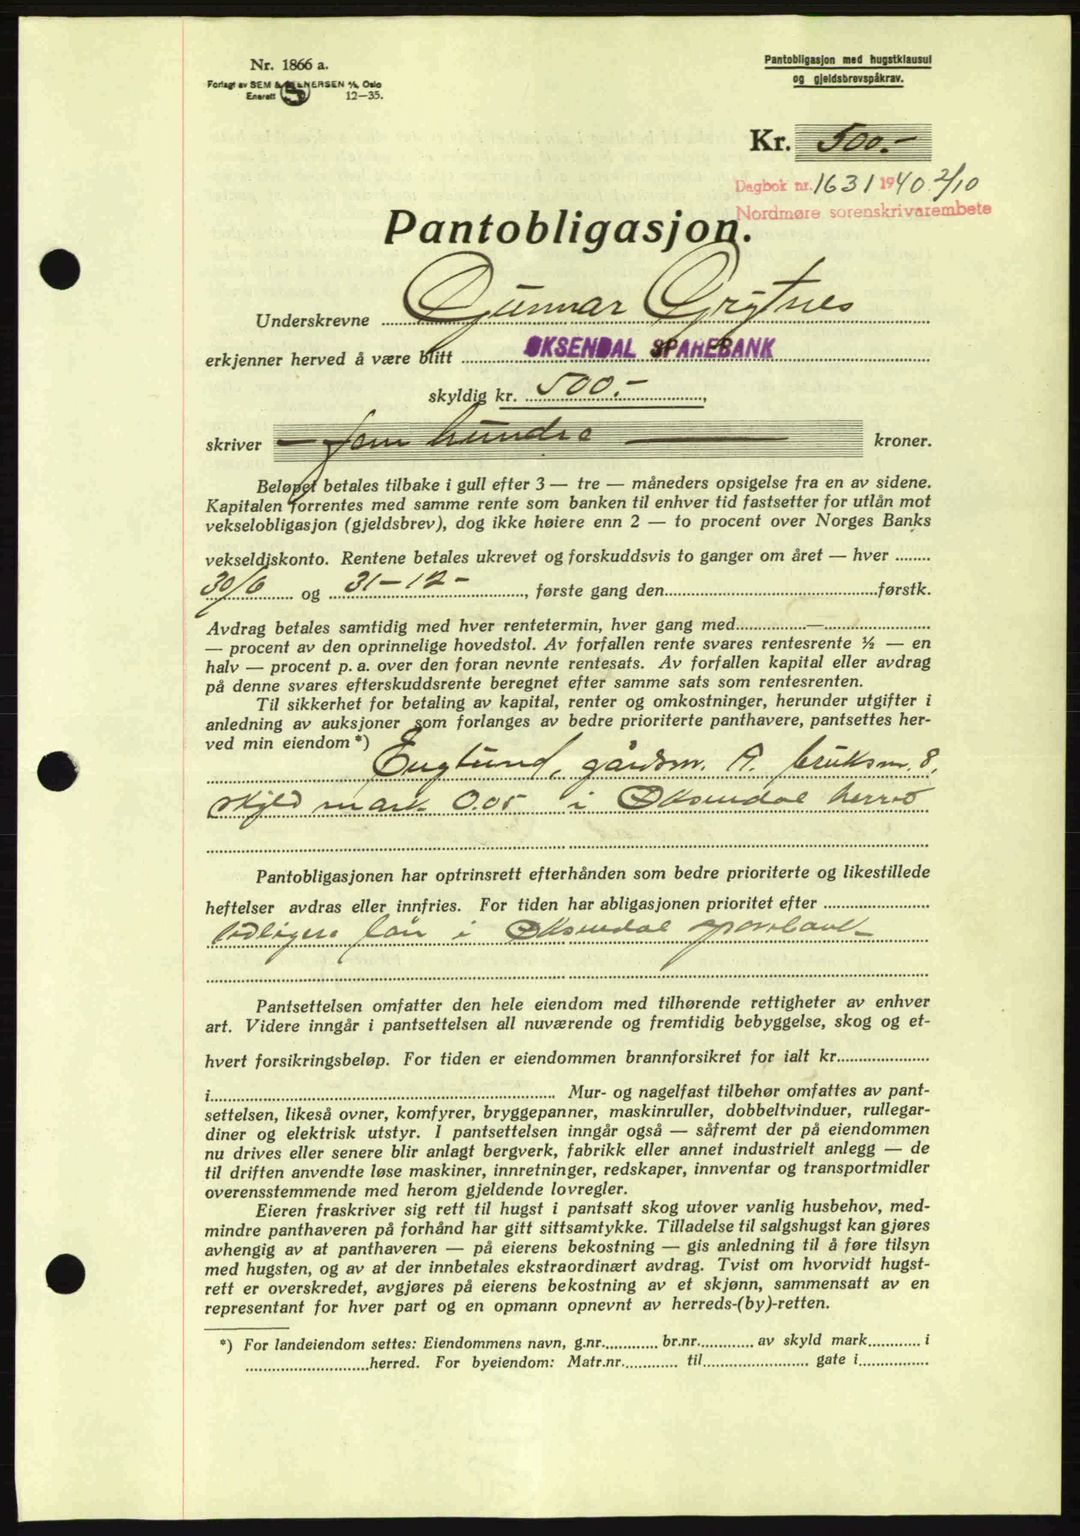 Nr. 1866 a.
Forlagt av SEM & STENERSEN A/S, Oslo
Enerett 12-35.
Pantobligasjon med hugstklausul
og gjeldsbrevspåkrav.
Kr. 500.-
Dagbok nr. 1631 1940 2/10
Nordmøre sorenskrivarembete
Pantobligasjon.
Underskrevne Gunnar Grytnes
erkjenner herved å være blitt ØKSENDAL SPAREBANK
skyldig kr. 500.-,
skriver — fem hundre — kroner.
Beløpet betales tilbake i gull efter 3 — tre — måneders opsigelse fra en av sidene.
Kapitalen forrentes med samme rente som banken til enhver tid fastsetter for utlån mot
vekselobligasjon (gjeldsbrev), dog ikke høiere enn 2 — to procent over Norges Banks
vekseldiskonto. Rentene betales ukrevet og forskuddsvis to ganger om året — hver ........
30/6 og 31-12-, første gang den..............førstk.
Avdrag betales samtidig med hver rentetermin, hver gang med..............—..............
— procent av den oprinnelige hovedstol. Av forfallen rente svares rentesrente ½ — en
halv — procent p. a. over den foran nevnte rentesats. Av forfallen kapital eller avdrag
på denne svares efterskuddsrente beregnet efter samme sats som rentesrenten.
Til sikkerhet for betaling av kapital, renter og omkostninger, herunder utgifter i
anledning av auksjoner som forlanges av bedre prioriterte panthavere, pantsettes her-
ved min eiendom *)
Englund, gårdsnr. A. bruksnr. 8,
skyld mark 0.05 i Øksendal herred
Pantobligasjonen har optrinsrett efterhånden som bedre prioriterte og likestillede
heftelser avdras eller innfries. For tiden har abligasjonen prioritet efter ..............
tidligere lån i Øksendal sparebank
Pantsettelsen omfatter den hele eiendom med tilhørende rettigheter av enhver
art. Videre inngår i pantsettelsen all nuværende og fremtidig bebyggelse, skog og et-
hvert forsikringsbeløp. For tiden er eiendommen brannforsikret for ialt kr..............
i.............. Mur- og nagelfast tilbehør omfattes av pant-
settelsen, likeså ovner, komfyrer, bryggepanner, maskinruller, dobbeltvinduer, rullegar-
diner og elektrisk utstyr. I pantsettelsen inngår også — såfremt der på eiendommen
nu drives eller senere blir anlagt bergverk, fabrikk eller annet industrielt anlegg — de
til driften anvendte løse maskiner, innretninger, redskaper, innventar og transportmidler
overensstemmende med herom gjeldende lovregler.
Eieren fraskriver sig rett til hugst i pantsatt skog utover vanlig husbehov, med-
mindre panthaveren på forhånd har gitt sittsamtykke. Tilladelse til salgshugst kan gjøres
avhengig av at panthaveren — på eierens bekostning — gis anledning til å føre tilsyn
med hugsten, og av at der innbetales ekstraordinært avdrag. Tvist om hvorvidt hugst-
rett er overskredet, avgjøres på eierens bekostning av et skjønn, sammensatt av en
representant for hver part og en opmann opnevnt av herreds-(by)-retten.
*) For landeiendom settes: Eiendommens navn, g.nr............. br.nr............. av skyld mark............. i
..............herred. For byeiendom: Matr.nr............. til.............. gate i..............